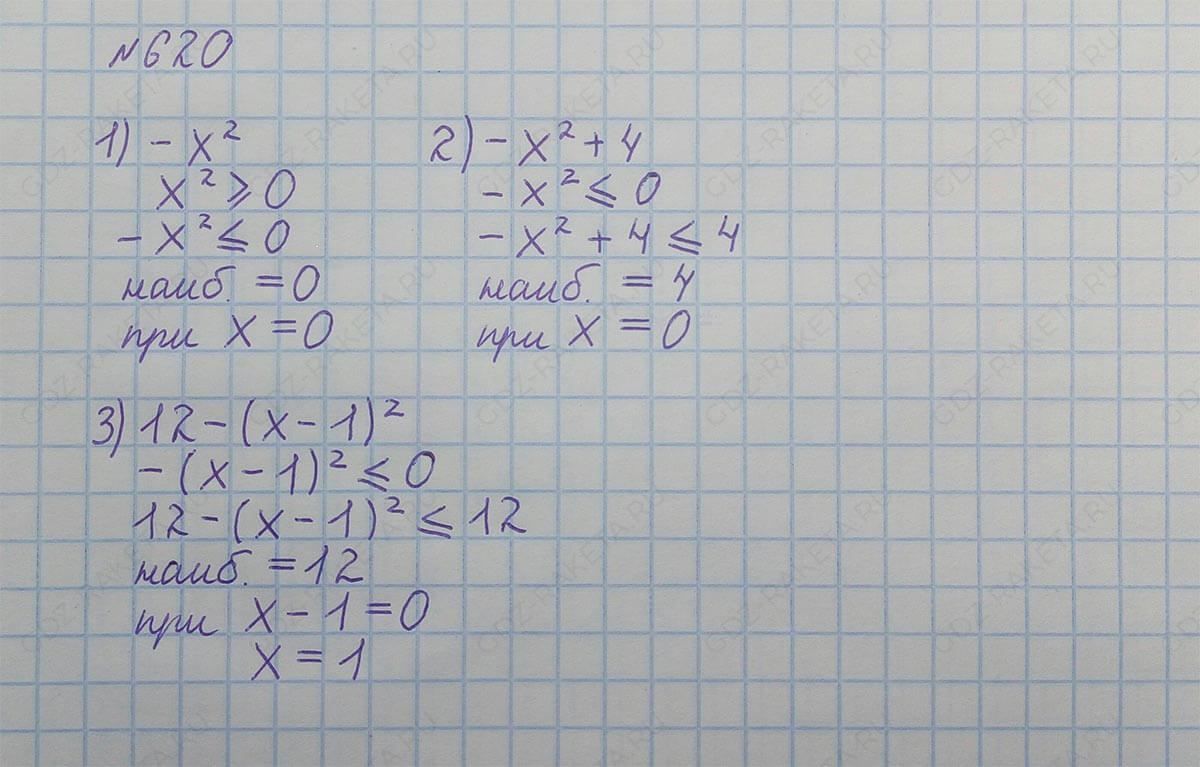 №620
1) - x²
x² ⩾ 0
- x² ⩽ 0
наиб. = 0
при x = 0
2) - x² + 4
- x² ⩽ 0
- x² + 4 ⩽ 4
наиб. = 4
при x = 0
3) 12 - (x - 1)²
- (x - 1)² ⩽ 0
12 - (x - 1)² ⩽ 12
наиб. = 12
при x - 1 = 0
x = 1
GDZ-RAKETA.RU